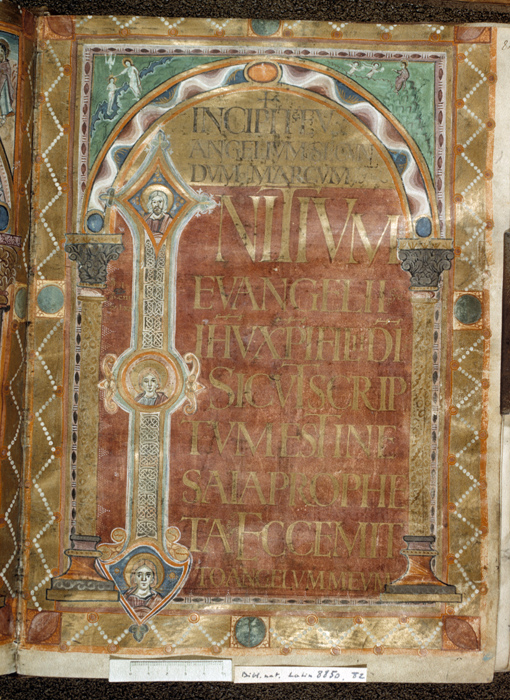 INCIPIT EV
ANGELIUM SECUN
DUM MARCUM
INITIUM
EVANGELII
IHU XPI FILII DI
SICUT SCRIP
TUM EST IN E
SAIA PROPHE
TA ECCE MIT
TO ANGELUM MEUM
Bibl. nat. Latin 8850, 82